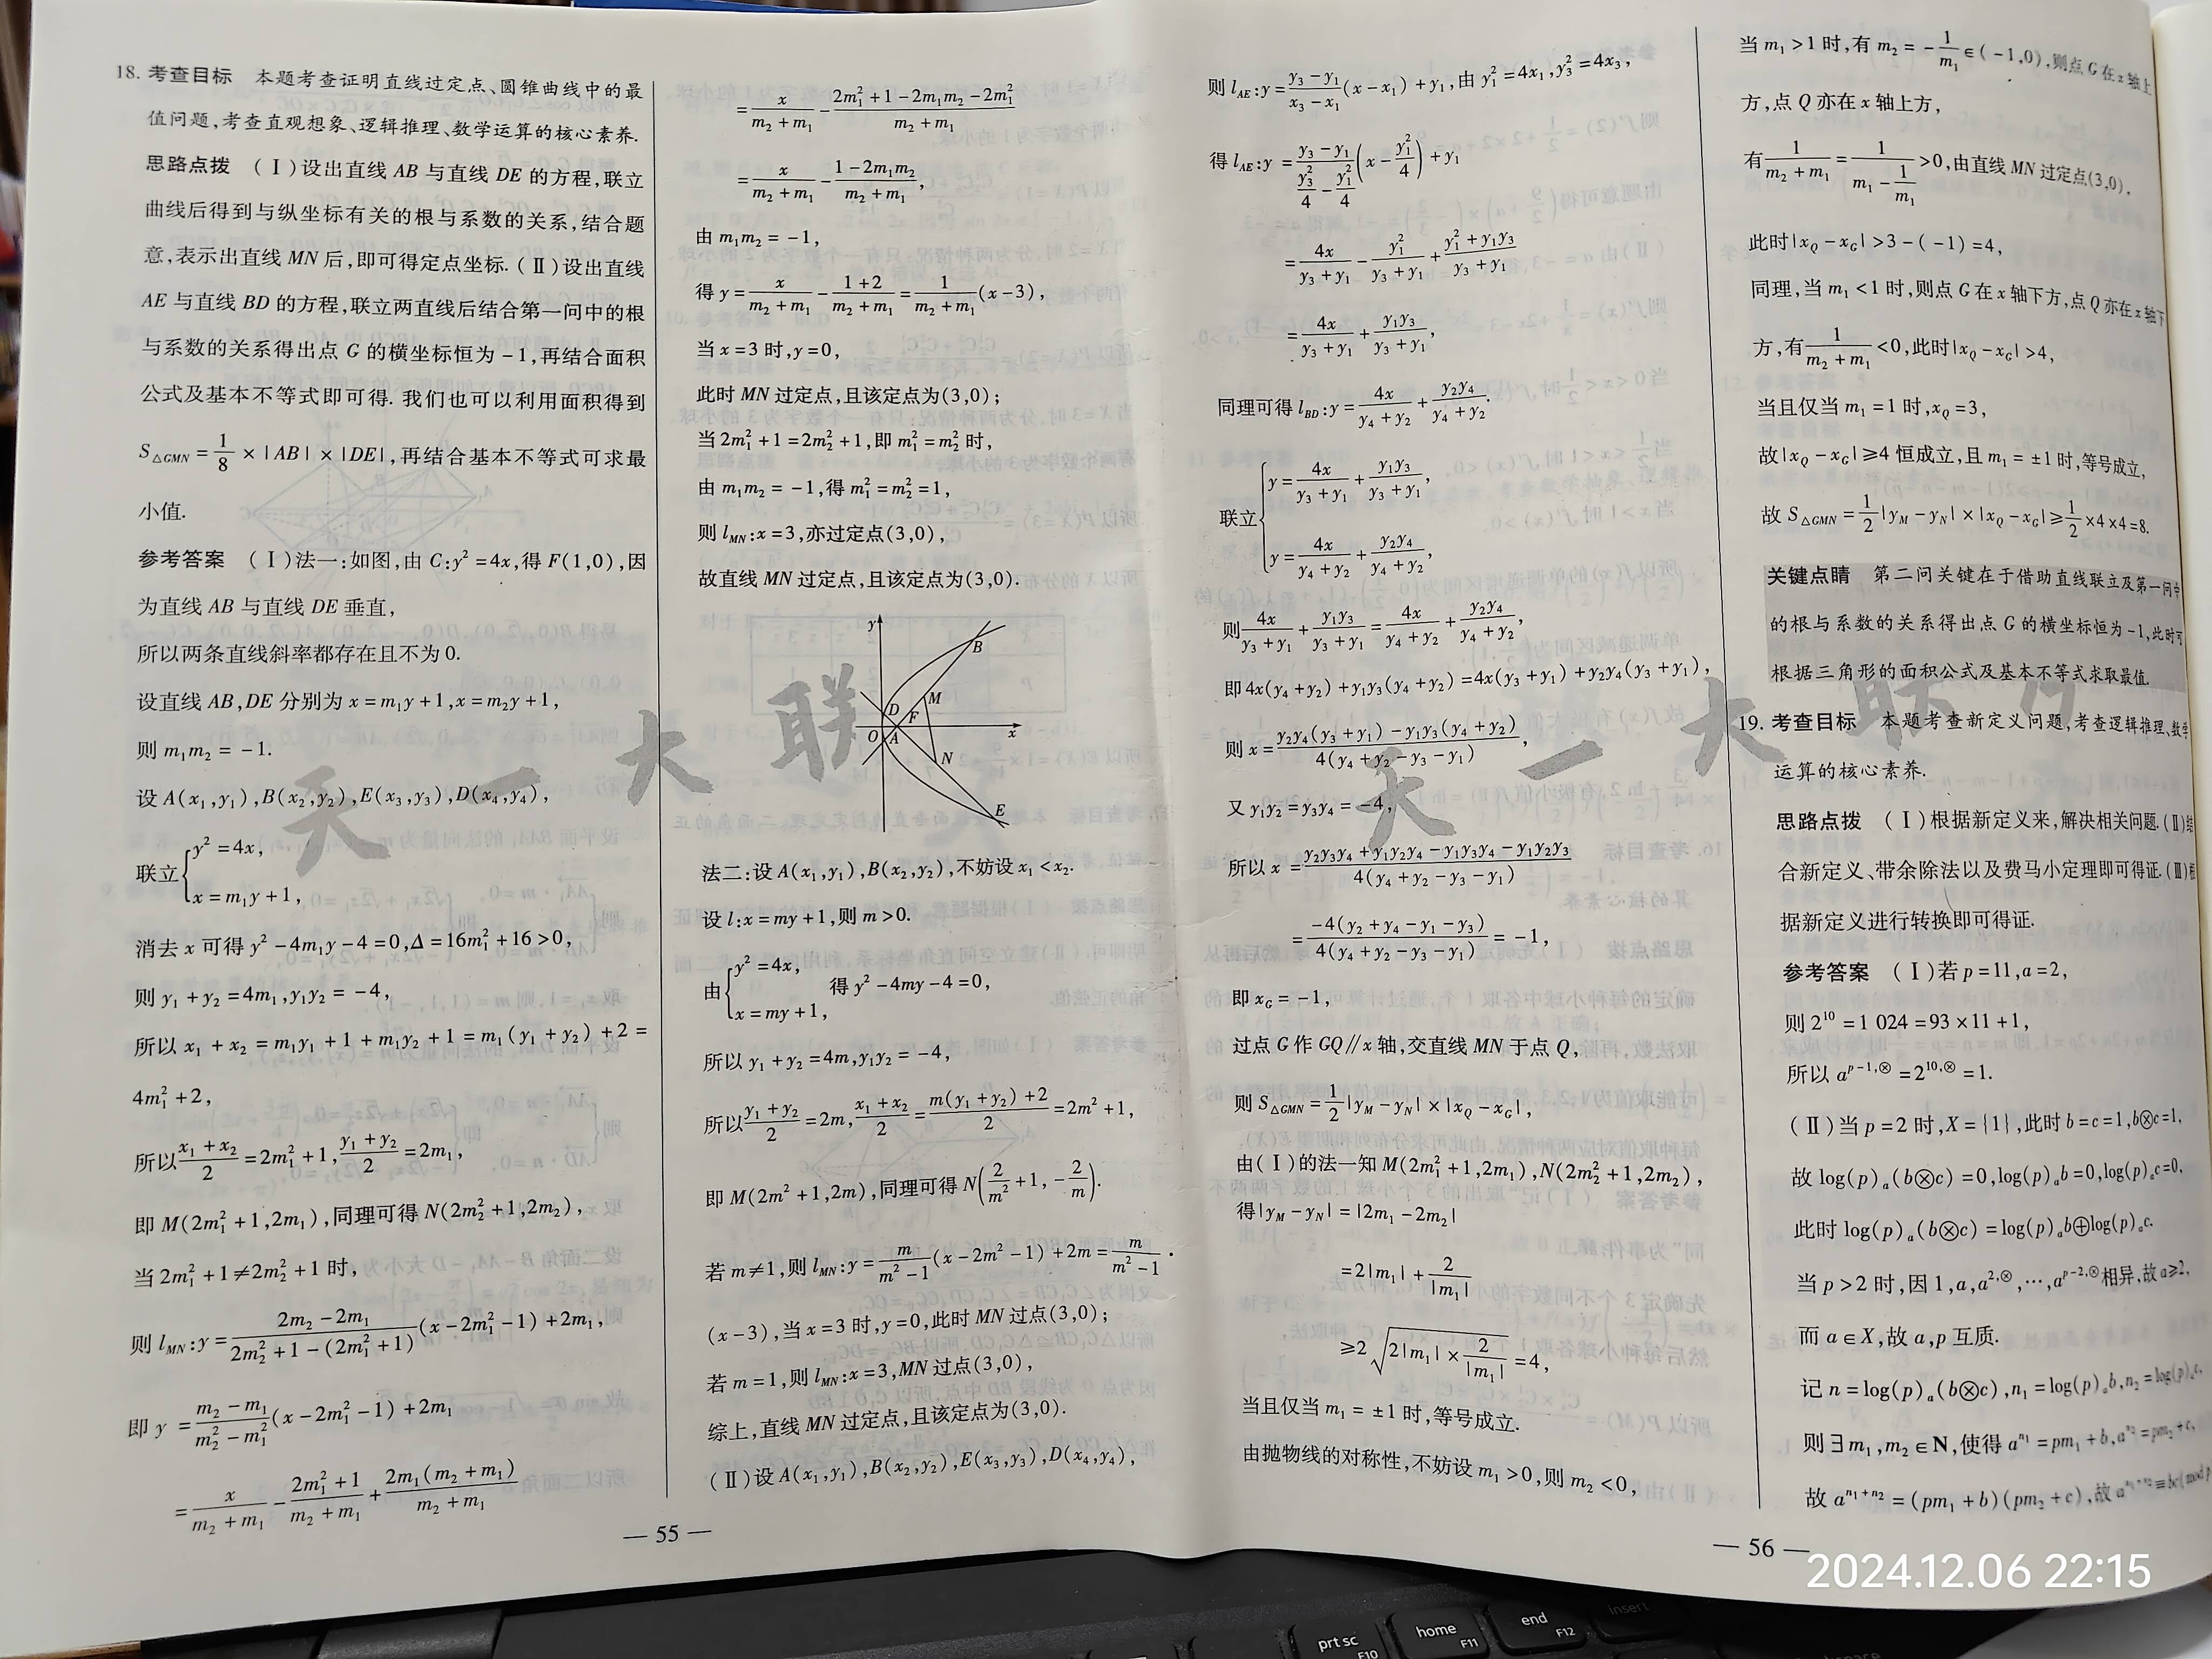 18. 考查目标 本题考查证明直线过定点、圆锥曲线中的最
值问题,考查直观想象、逻辑推理、数学运算的核心素养.
思路点拨 (Ⅰ)设出直线 AB 与直线 DE 的方程,联立
曲线后得到与纵坐标有关的根与系数的关系,结合题
意,表示出直线 MN 后,即可得定点坐标.(Ⅱ)设出直线
AE 与直线 BD 的方程,联立两直线后结合第一问中的根
与系数的关系得出点 G 的横坐标恒为 -1,再结合面积
公式及基本不等式即可得. 我们也可以利用面积得到
S△GMN = 1/8 × |AB| × |DE|,再结合基本不等式可求最
小值.
参考答案 (Ⅰ)法一:如图,由 C:y² = 4x,得 F(1,0),因
为直线 AB 与直线 DE 垂直,
所以两条直线斜率都存在且不为 0.
设直线 AB,DE 分别为 x = m₁y + 1,x = m₂y + 1,
则 m₁m₂ = -1.
设 A(x₁,y₁),B(x₂,y₂),E(x₃,y₃),D(x₄,y₄),
联立{y² = 4x,
x = m₁y + 1,
消去 x 可得 y² - 4m₁y - 4 = 0,Δ = 16m₁² + 16 > 0,
则 y₁ + y₂ = 4m₁,y₁y₂ = -4,
所以 x₁ + x₂ = m₁y₁ + 1 + m₁y₂ + 1 = m₁(y₁ + y₂) + 2 =
4m₁² + 2,
所以 (x₁ + x₂)/2 = 2m₁² + 1,(y₁ + y₂)/2 = 2m₁,
即 M(2m₁² + 1,2m₁),同理可得 N(2m₂² + 1,2m₂),
当 2m₁² + 1 ≠ 2m₂² + 1 时,
则 l_MN:y = (2m₂ - 2m₁)/(2m₂² + 1 - (2m₁² + 1))(x - 2m₁² - 1) + 2m₁,
即 y = (m₂ - m₁)/(m₂² - m₁²)(x - 2m₁² - 1) + 2m₁
= x/(m₂ + m₁) - (2m₁² + 1)/(m₂ + m₁) + 2m₁(m₂ + m₁)/(m₂ + m₁)
= x/(m₂ + m₁) - (2m₁² + 1 - 2m₁m₂ - 2m₁²)/(m₂ + m₁)
= x/(m₂ + m₁) - (1 - 2m₁m₂)/(m₂ + m₁),
由 m₁m₂ = -1,
得 y = x/(m₂ + m₁) - (1 + 2)/(m₂ + m₁) = 1/(m₂ + m₁)(x - 3),
当 x = 3 时,y = 0,
此时 MN 过定点,且该定点为(3,0);
当 2m₁² + 1 = 2m₂² + 1,即 m₁² = m₂² 时,
由 m₁m₂ = -1,得 m₁² = m₂² = 1,
则 l_MN:x = 3,亦过定点(3,0),
故直线 MN 过定点,且该定点为(3,0).
y
B
M
D
F
O
A
x
N
E
法二:设 A(x₁,y₁),B(x₂,y₂),不妨设 x₁ < x₂.
设 l:x = my + 1,则 m > 0.
由{y² = 4x,
x = my + 1, 得 y² - 4my - 4 = 0,
所以 y₁ + y₂ = 4m,y₁y₂ = -4,
所以 (y₁ + y₂)/2 = 2m,(x₁ + x₂)/2 = (m(y₁ + y₂) + 2)/2 = 2m² + 1,
即 M(2m² + 1,2m),同理可得 N(2/m² + 1, -2/m).
若 m ≠ 1,则 l_MN:y = m/(m² - 1)(x - 2m² - 1) + 2m = m/(m² - 1) ·
(x - 3),当 x = 3 时,y = 0,此时 MN 过点(3,0);
若 m = 1,则 l_MN:x = 3,MN 过点(3,0),
综上,直线 MN 过定点,且该定点为(3,0).
(Ⅱ)设 A(x₁,y₁),B(x₂,y₂),E(x₃,y₃),D(x₄,y₄),
— 55 —
则 l_AE:y = (y₃ - y₁)/(x₃ - x₁)(x - x₁) + y₁,由 y₁² = 4x₁,y₃² = 4x₃,
得 l_AE:y = (y₃ - y₁)/(y₃²/4 - y₁²/4)(x - y₁²/4) + y₁
= 4x/(y₃ + y₁) - y₁²/(y₃ + y₁) + (y₁² + y₁y₃)/(y₃ + y₁)
= 4x/(y₃ + y₁) + y₁y₃/(y₃ + y₁),
同理可得 l_BD:y = 4x/(y₄ + y₂) + y₂y₄/(y₄ + y₂).
联立{y = 4x/(y₃ + y₁) + y₁y₃/(y₃ + y₁),
y = 4x/(y₄ + y₂) + y₂y₄/(y₄ + y₂),
则 4x/(y₃ + y₁) + y₁y₃/(y₃ + y₁) = 4x/(y₄ + y₂) + y₂y₄/(y₄ + y₂),
即 4x(y₄ + y₂) + y₁y₃(y₄ + y₂) = 4x(y₃ + y₁) + y₂y₄(y₃ + y₁),
则 x = (y₂y₄(y₃ + y₁) - y₁y₃(y₄ + y₂))/(4(y₄ + y₂ - y₃ - y₁)),
又 y₁y₂ = y₃y₄ = -4,
所以 x = (y₂y₃y₄ + y₁y₂y₄ - y₁y₃y₄ - y₁y₂y₃)/(4(y₄ + y₂ - y₃ - y₁))
= -4(y₂ + y₄ - y₁ - y₃)/(4(y₄ + y₂ - y₃ - y₁)) = -1,
即 x_G = -1,
过点 G 作 GQ∥x 轴,交直线 MN 于点 Q,
则 S△GMN = 1/2|y_M - y_N| × |x_Q - x_G|,
由(Ⅰ)的法一知 M(2m₁² + 1,2m₁),N(2m₂² + 1,2m₂),
得|y_M - y_N| = |2m₁ - 2m₂|
= 2|m₁| + 2/|m₁|
≥ 2√(2|m₁| × 2/|m₁|) = 4,
当且仅当 m₁ = ±1 时,等号成立.
由抛物线的对称性,不妨设 m₁ > 0,则 m₂ < 0,
当 m₁ > 1 时,有 m₂ = -1/m₁ ∈ (-1,0),则点 G 在 x 轴上
方,点 Q 亦在 x 轴上方,
有 1/(m₂ + m₁) = 1/(m₁ - 1/m₁) > 0,由直线 MN 过定点(3,0),
此时|x_Q - x_G| > 3 - (-1) = 4,
同理,当 m₁ < 1 时,则点 G 在 x 轴下方,点 Q 亦在 x 轴下
方,有 1/(m₂ + m₁) < 0,此时|x_Q - x_G| > 4,
当且仅当 m₁ = 1 时,x_Q = 3,
故|x_Q - x_G| ≥ 4 恒成立,且 m₁ = ±1 时,等号成立,
故 S△GMN = 1/2|y_M - y_N| × |x_Q - x_G| ≥ 1/2 × 4 × 4 = 8.
关键点睛 第二问关键在于借助直线联立及第一问中
的根与系数的关系得出点 G 的横坐标恒为 -1,此时可
根据三角形的面积公式及基本不等式求取最值.
19. 考查目标 本题考查新定义问题,考查逻辑推理、数学
运算的核心素养.
思路点拨 (Ⅰ)根据新定义来,解决相关问题.(Ⅱ)结
合新定义、带余除法以及费马小定理即可得证.(Ⅲ)根
据新定义进行转换即可得证.
参考答案 (Ⅰ)若 p = 11,a = 2,
则 2¹⁰ = 1 024 = 93 × 11 + 1,
所以 a^(p-1,⊗) = 2^(10,⊗) = 1.
(Ⅱ)当 p = 2 时,X = {1},此时 b = c = 1,b⊗c = 1,
故 log(p)ₐ(b⊗c) = 0,log(p)ₐb = 0,log(p)ₐc = 0,
此时 log(p)ₐ(b⊗c) = log(p)ₐb⊕log(p)ₐc.
当 p > 2 时,因 1,a,a^(2,⊗),⋯,a^(p-2,⊗) 相异,故 a ≥ 2,
而 a ∈ X,故 a,p 互质.
记 n = log(p)ₐ(b⊗c),n₁ = log(p)ₐb,n₂ = log(p)ₐc,
则 ∃m₁,m₂ ∈ N,使得 a^(n₁) = pm₁ + b,a^(n₂) = pm₂ + c,
故 a^(n₁+n₂) = (pm₁ + b)(pm₂ + c),故 a^(n₁+n₂) ≡ bc(mod p
— 56 —
天一大联
天一大联
2024.12.06 22:15
prt sc
F10
home
F11
end
F12
insert